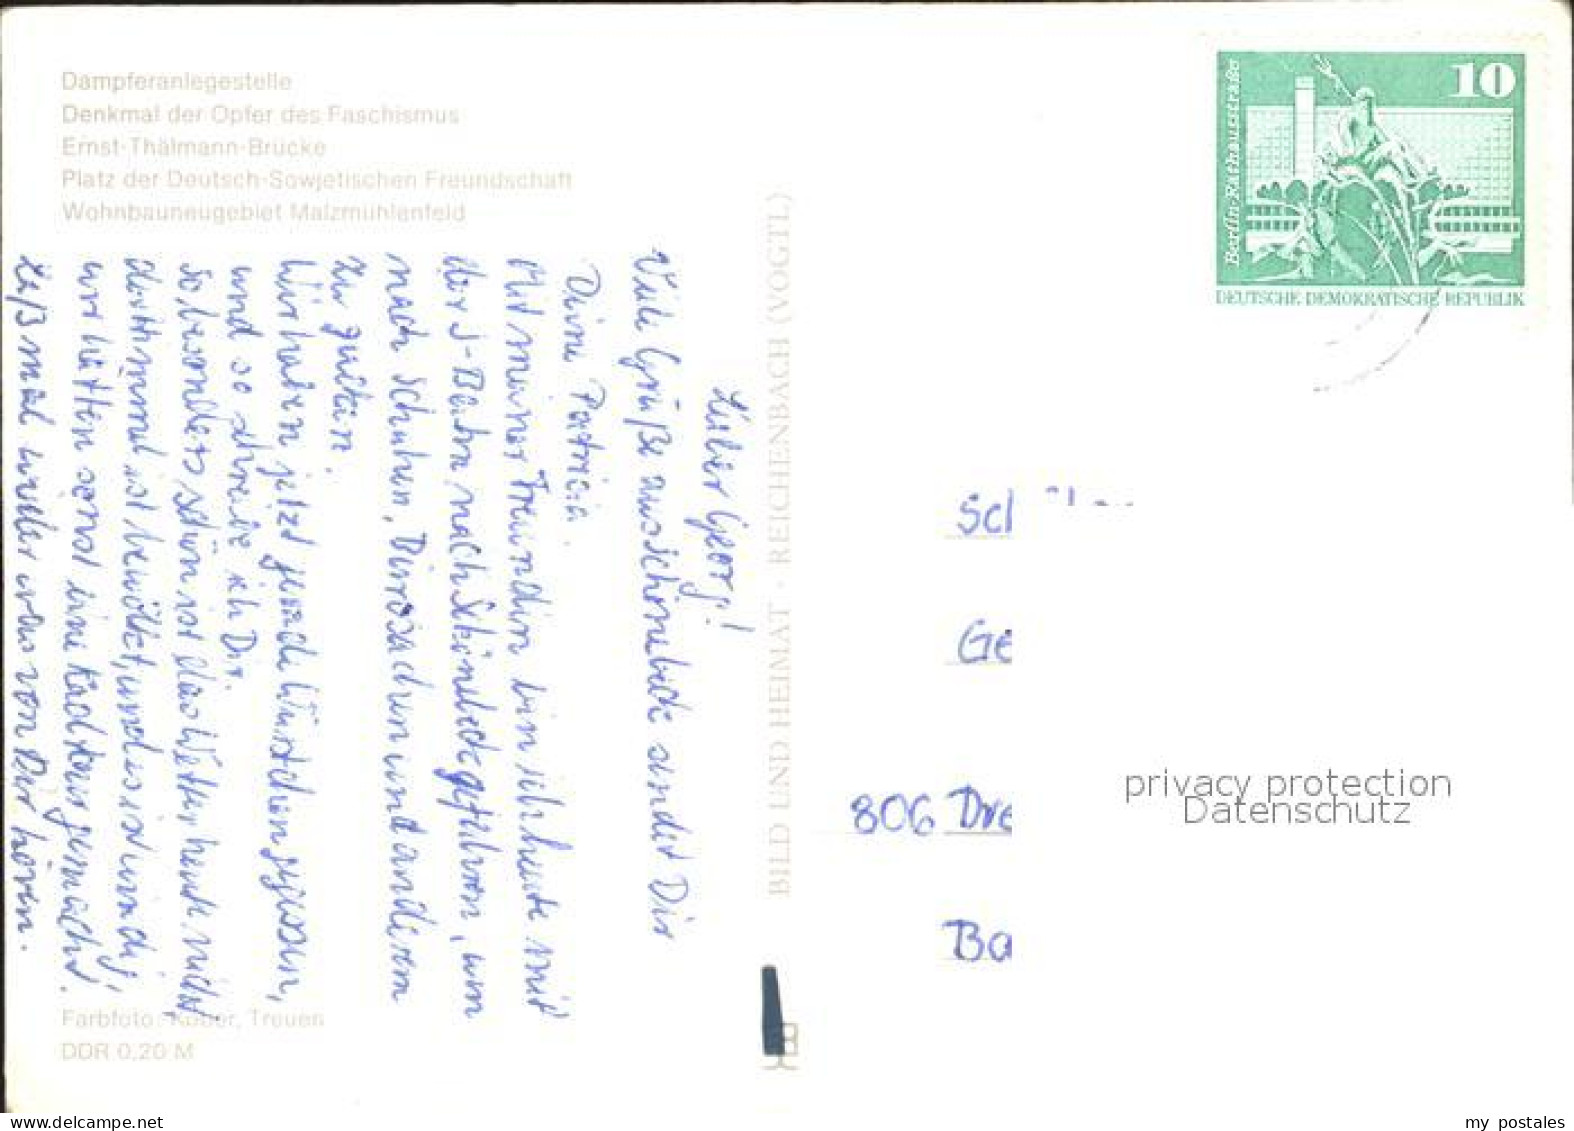 Dampferanlegestelle
Denkmal der Opfer des Faschismus
Ernst-Thälmann-Brücke
Platz der Deutsch-Sowjetischen Freundschaft
Wohnbauneugebiet Malzmühlenfeld
Lieber Georg!
Viele Grüße aus Schönebeck sendet Dir
Deine Patricia.
Mit meiner Freundin bin ich heute mit
der S-Bahn nach Schönebeck gefahren, um
nach Schuhen, Dürosachen und anderem
zu gucken.
Wir haben jetzt gerade Würstchen gegessen,
und so schreibe ich Dir.
So besonders schön ist das Wetter heute nicht,
der Himmel ist bewölkt, und es ist windig,
wir hätten sonst eine Radtour gemacht.
Laß mal wieder was von Dir hören.
Farbfoto: Kober, Treuen
DDR 0,20 M
BILD UND HEIMAT · REICHENBACH (VOGTL)
Berlin-Rathausstraße
10
DEUTSCHE DEMOKRATISCHE REPUBLIK
Sc
Ge
806 Dre
Ba
privacy protection
Datenschutz
www.delcampe.net
my_postales